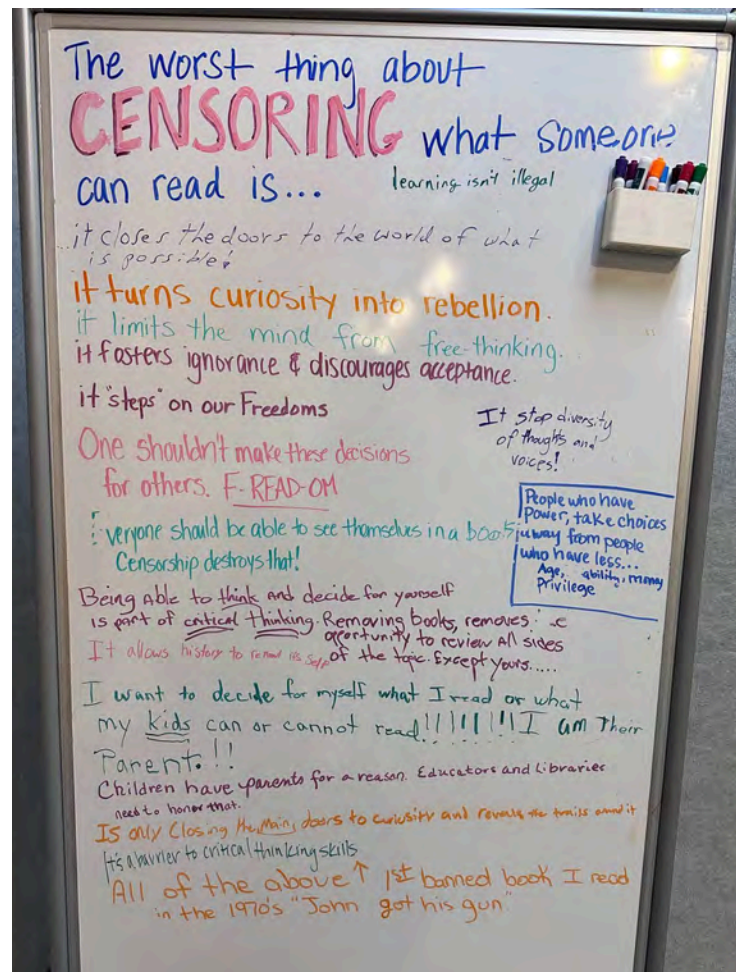 The worst thing about
CENSORING what someone
can read is...
learning isn't illegal
...it closes the doors to the world of what
is possible!
it turns curiosity into rebellion.
it limits the mind from free-thinking.
it fosters ignorance & discourages acceptance.
it "steps" on our Freedoms
It stop diversity
of thoughts and
voices!
One shouldn't make these decisions
for others. F-READ-OM
People who have
Power, take choices
away from people
who have less...
Age, ability, money
Privilege
Everyone should be able to see themselves in a book;
Censorship destroys that!
Being Able to think And decide for yourself
is part of critical thinking. Removing books, removes
opportunity to review All sides
of the topic. Except yours.....
It allows history to its self
I want to decide for myself what I read or what
my kids can or cannot read!!!!!!!! I am Their
Parent.!!
Children have parents for a reason. Educators and Libraries
need to honor that.
Is only Closing the, Main, doors to curiosity and reveals the trails around it
It's a barrier to critical thinking skills
All of the above ↑ 1st banned book I read
in the 1970's "John got his gun"